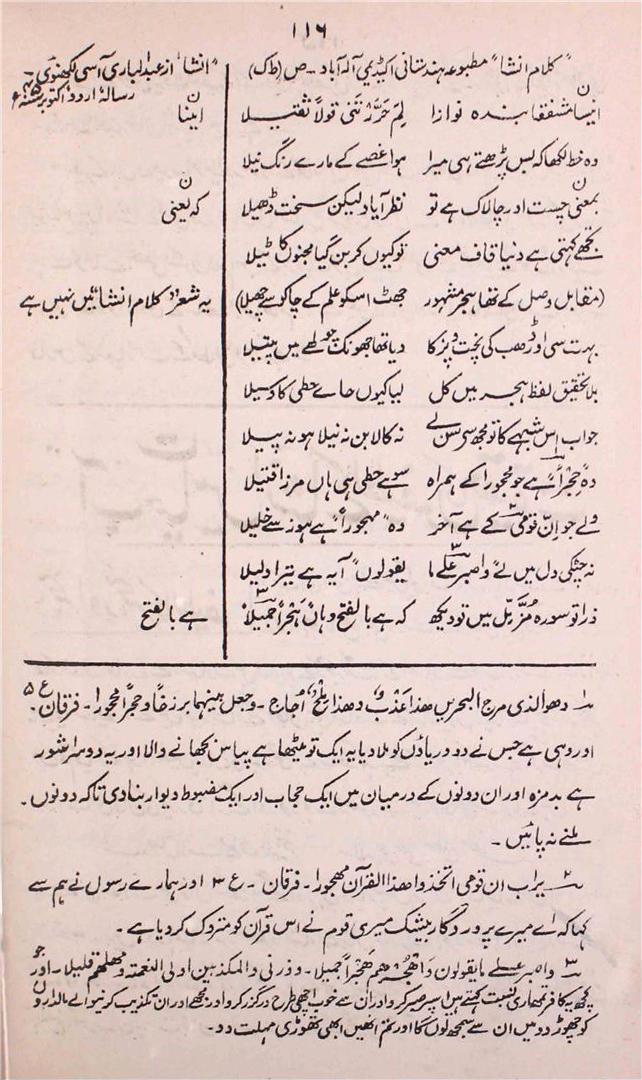 ۱۱۶
"کلام انشا" مطبوعہ ہندستانی اکیڈیمی الہ آباد۔ ص (ط ک)
"انشا" از عبدالباری آسی لکھنوی۔
رسالہ اردو اکتوبر
انیسا مشفقا بندہ نوازا لِمَ حَرَّرْتَنِی قولاً ثقیلا
ن ایںنا
وہ خط لکھا کہ بس پڑھتے ہی میرا ہوا غصے کے مارے رنگ نیلا
بمعنی چست اور چالاک ہے تو نظر آیا ولیکن سخت ڈھیلا
ن کہ یعنی
تجھے کہتی ہے دنیا قاف معنی تو کیوں کر بن گیا مجنوں کا ٹیلا
(مقابل وصل کے تھا ہجر مشہور جھٹ اسکو علم کے چاکو سے چھیلا)
یہ شعر "کلام انشا" میں نہیں ہے
بہت سی اوڑھب کی پخت و پز کا دیا تھا جھونک چولھے میں پتیلا
بلا تحقیق لفظ ہجر میں کل لیا کیوں حاے حطی کا وسیلا
جواب اس شبہے کا تو مجھ سے سن لے نہ کالا بن نہ نیلا ہو نہ پیلا
وہ حِجْراً ہے جو محجورا کے ہمراہ سو ہے حطی ہی ہاں مرزا قتیلا
ولے جو اِنّ قومی کے ہے آخر وہ "مہجوراً" ہے ہوز سے خلیلا
نہ چپکی دل میں لے واصبر علےٰ ما یقولون" آیہ ہے تیرا دلیلا
ذرا تو سورہ مُزَّمِّل میں تو دیکھ کہ ہے بالفتح وہاں ہَجْراً جمیلا
ہے بالفتح
۱؎ وھو الذی مرج البحرین ھذا عَذْبٌ و ھذا ملح اُجاج۔ وجعل بینھما برزخاً و حجراً محجورا۔ فرقان۔ ع ۵
اور وہی ہے جس نے دو دریاؤں کو ملا دیا یہ ایک تو میٹھا ہے پیاس بجھانے والا اور یہ دوسرا شور
ہے بدمزہ اور ان دونوں کے درمیان میں ایک حجاب اور ایک مضبوط دیوار بنا دی تاکہ دونوں۔
ملنے نہ پائیں۔
۲؎ یرب ان قومی اتخذوا ھذا القرآن مھجورا۔ فرقان۔ ع ۳ اور ہمارے رسول نے ہم سے
کہا کہ اے میرے پروردگار بیشک میری قوم نے اس قرآن کو متروک کر دیا ہے۔
۳؎ واصبر علےٰ ما یقولون وَاھْجُرْھم ھَجْراً جمیلا۔ وذرنی والمکذبین اولی النعمتہ ومھلھم قلیلا۔ اور جو
کچھ یہ کافر تمھاری نسبت کہتے ہیں اسپر صبر کرو اور ان سے خوب اچھی طرح درگزر کرو اور مجھے اور ان تکذیب کرنیوالے مالداروں
کو چھوڑ دو میں ان سے سمجھ لوں گا اور تم انھیں ابھی تھوڑی مہلت دو۔